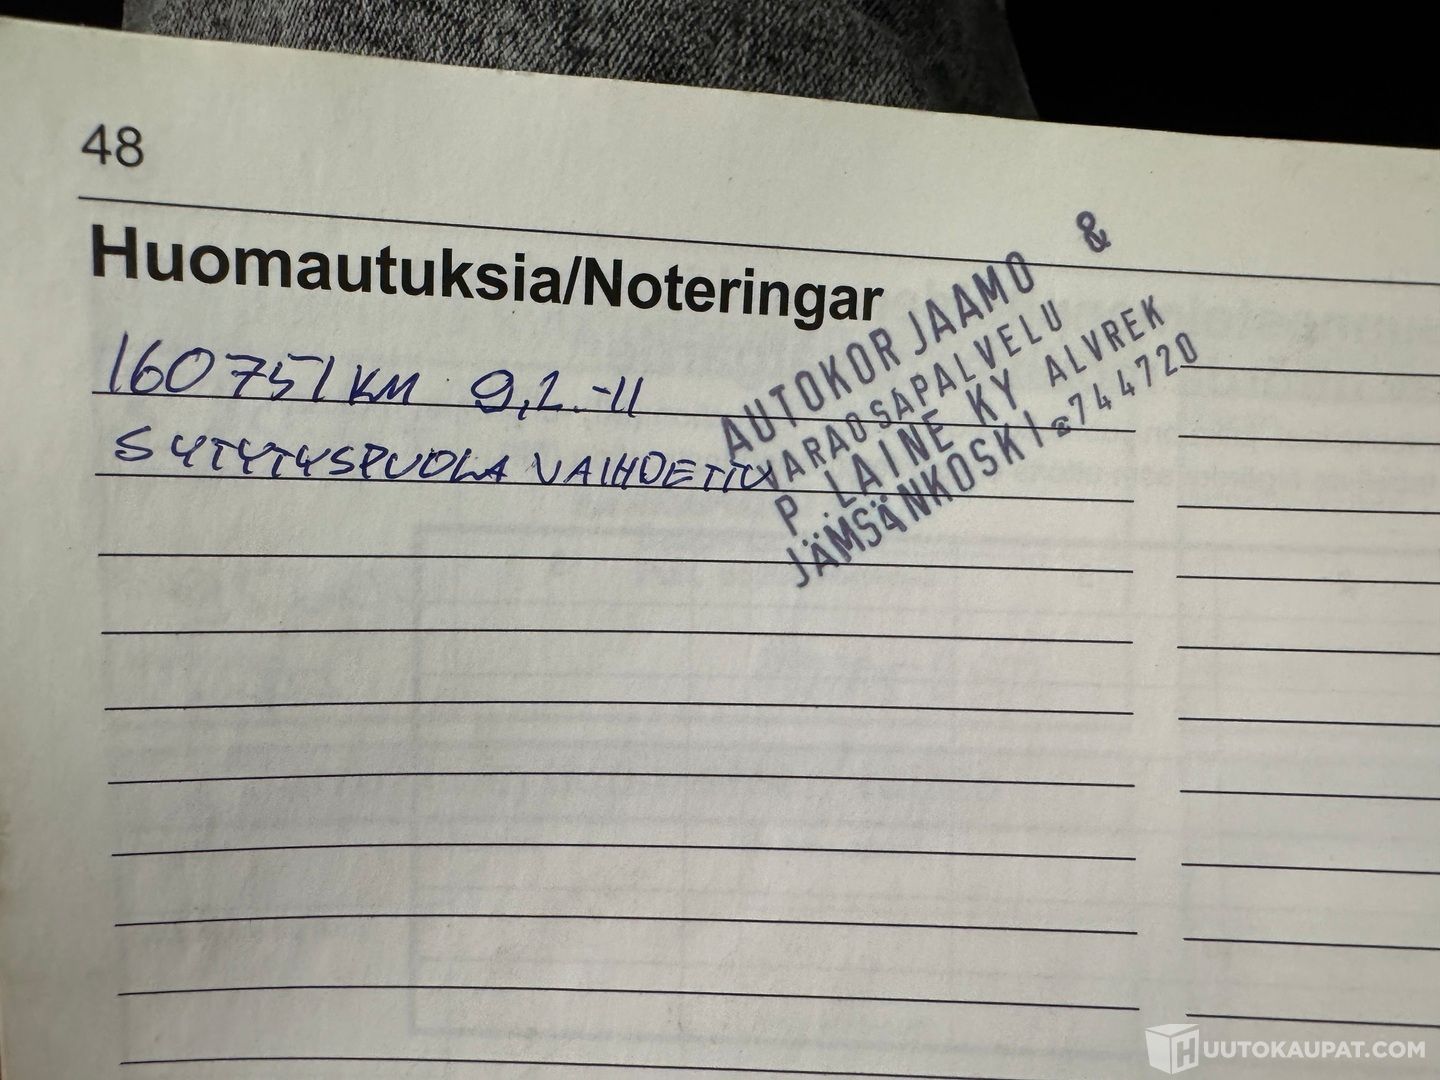 48
Huomautuksia/Noteringar
160751 KM 9,2.-11
SYTYTYSPUOLA VAIHDETTU
AUTOKORJAAMO &
VARAOSAPALVELU
P. LAINE KY ALVREK
JÄMSÄNKOSKI ☎744720
HUUTOKAUPAT.COM